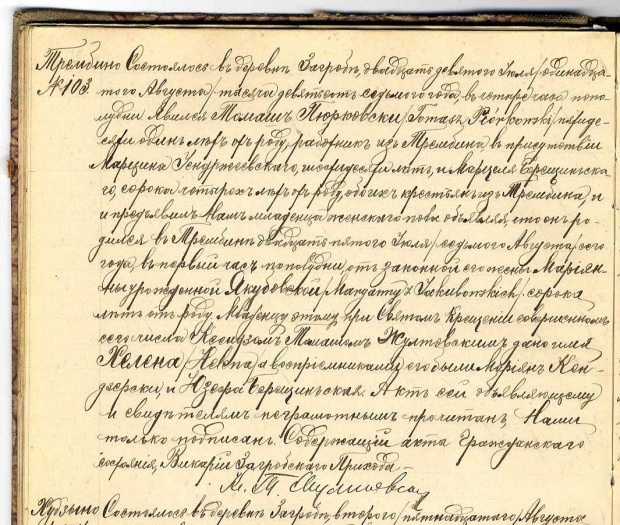 Трембино Состоялось въ деревнѣ Загроби, двадцать девятого Іюля /одинадца
№ 103. того Августа/ тысяча девятьсотъ седьмого года, въ четыре часа попо-
лудни Явился Томашъ Пюрковски /Tomasz Piórkowski/ пятиде-
сяти одинъ лѣтъ отъ роду, работникъ изъ Трембина, въ присутствіи
Марцина Ендржеевскаго, шестидесяти лѣтъ, и Марцела Черещиньска
го, сорока четырехъ лѣтъ отъ роду, обоихъ крестьянъ изъ Трембина, и
и предъявилъ Намъ младенца женскаго пола объявляя, что онъ ро-
дился въ Трембинѣ двадцать пятого Іюля /седьмого Августа/ сего
года, въ первый часъ пополудни, отъ законной его жены Маріян-
ны урожденной Якубовской /Maryanny z Jakubowskich/ сорока
лѣтъ отъ роду. Младенцу этому при Святомъ Крещеніи совершенномъ
сего числа Ксендзомъ Жултовскимъ дано имя
Хелена /Helena/ а воспріемниками его были Маріянъ Кен-
дзерски, и Юзефа Черещиньская. Актъ сей объявляющему
и свидѣтелямъ неграмотнымъ прочитанъ, Нами
только подписанъ. Содержащій акты Гражданскаго
состоянія, Викарій Загробскаго Прихода
Кс. Т.
Состоялось въ деревнѣ Загроби, второго /пятнадцатаго/ Августа